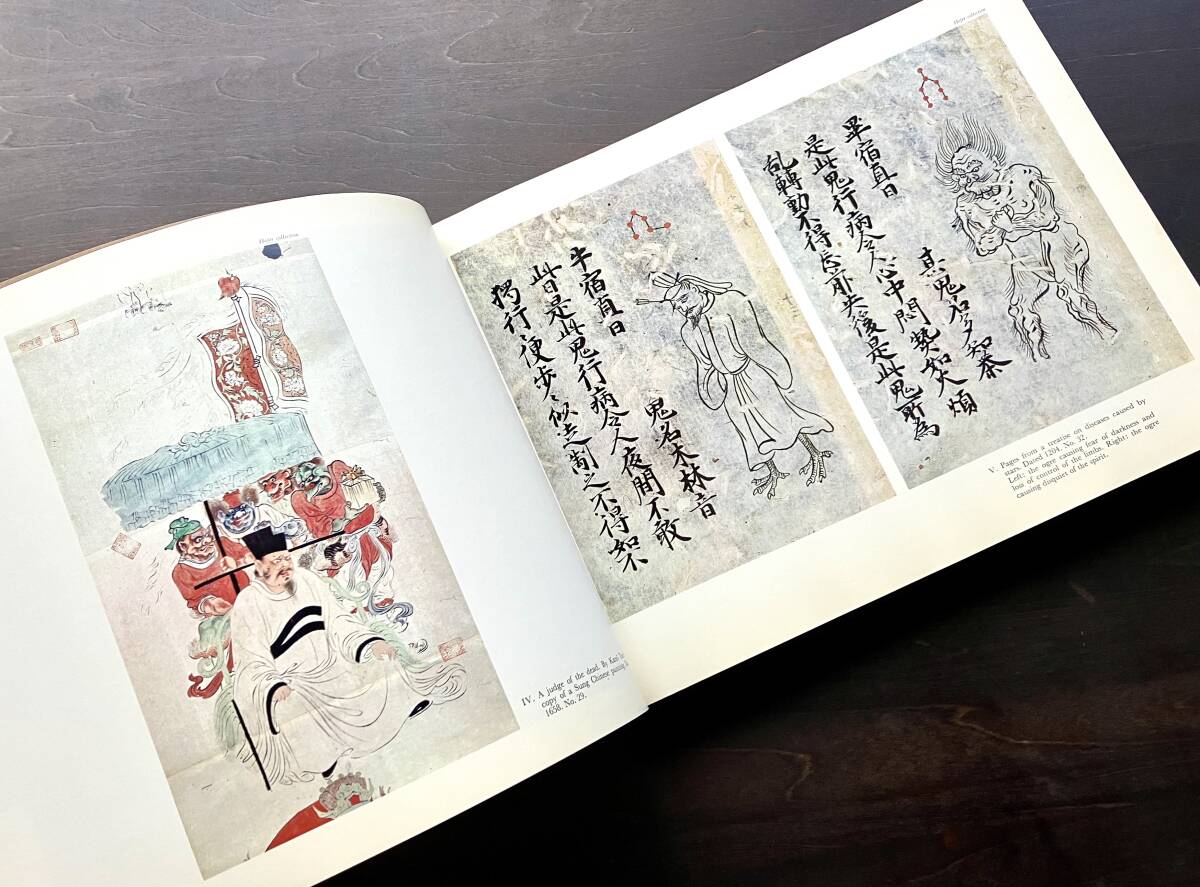 Hofer collection
IV. A judge of the dead. By Kanō
copy of a Sung Chinese painting
1658. No. 29.
Hofer collection
牛宿直日
鬼名木林音
此日是此鬼行病令人夜間不敢
獨行便步〻似走制之不得如不
畢宿直日
其鬼名多知泰
是此鬼行病令人心中悶熱如火煩
乱轉動不得忘前失後是此鬼所為
V. Pages from a treatise on diseases caused by
stars. Dated 1204. No. 32.
Left: the ogre causing fear of darkness and
loss of control of the limbs. Right: the ogre
causing disquiet of the spirit.